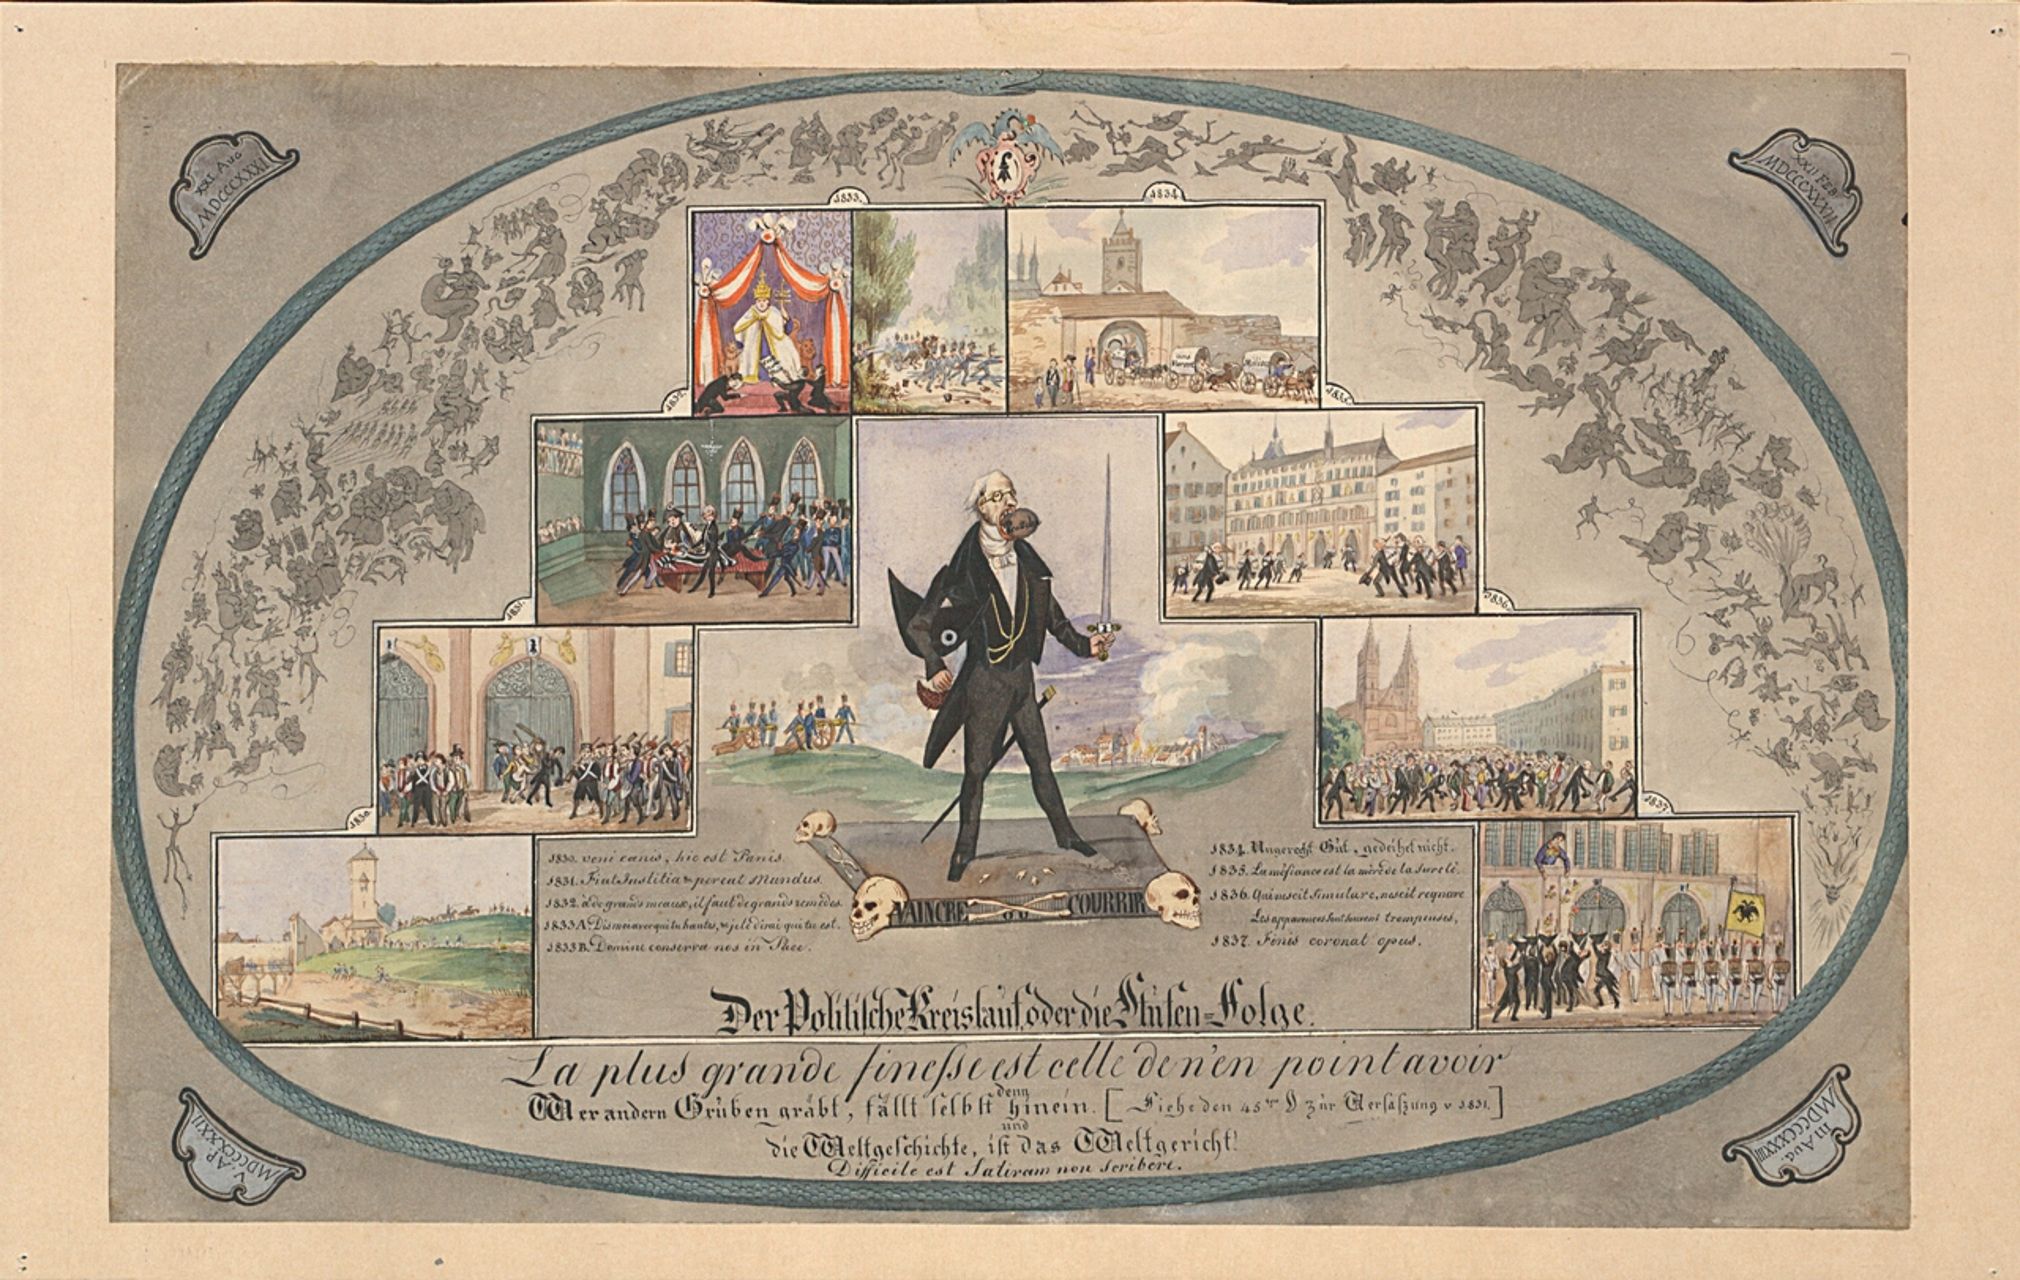 XXI Aug
MDCCCXXXI
XXII FEB
MDCCCXXXII
1833.
1834.
1832.
1835.
1831.
1836.
1830.
1837.
1830. veni canis, hic est Panis.
1831. Fiat Justitia & pereat Mundus.
1832. à de grands meaux, il faut de grands remèdes.
1833 A. Dis moi avec qui tu hantes, & je te dirai qui tu est.
1833 B. Domine conserva nos in Pace.
1834. Ungerecht Gut, gedeihet nicht.
1835. La méfiance est la mère de la sureté.
1836. Qui nescit simulare, nescit regnare
Les apparences sont souvent trompeuses,
1837. Finis coronat opus.
VAINCRE OU COURRIR
Der Politische Kreislauf, oder die Stufen=Folge.
La plus grande finesse est celle de n'en point avoir
denn
Wer andern Gruben gräbt, fällt selbst hinein. [Siehe den 45ten § zur Verfaßung v 1831.]
und
die Weltgeschichte, ist das Weltgericht!
Difficile est Satiram non scribere.
V. AP.
MDCCCXXXII
III Aug.
MDCCCXXXIII